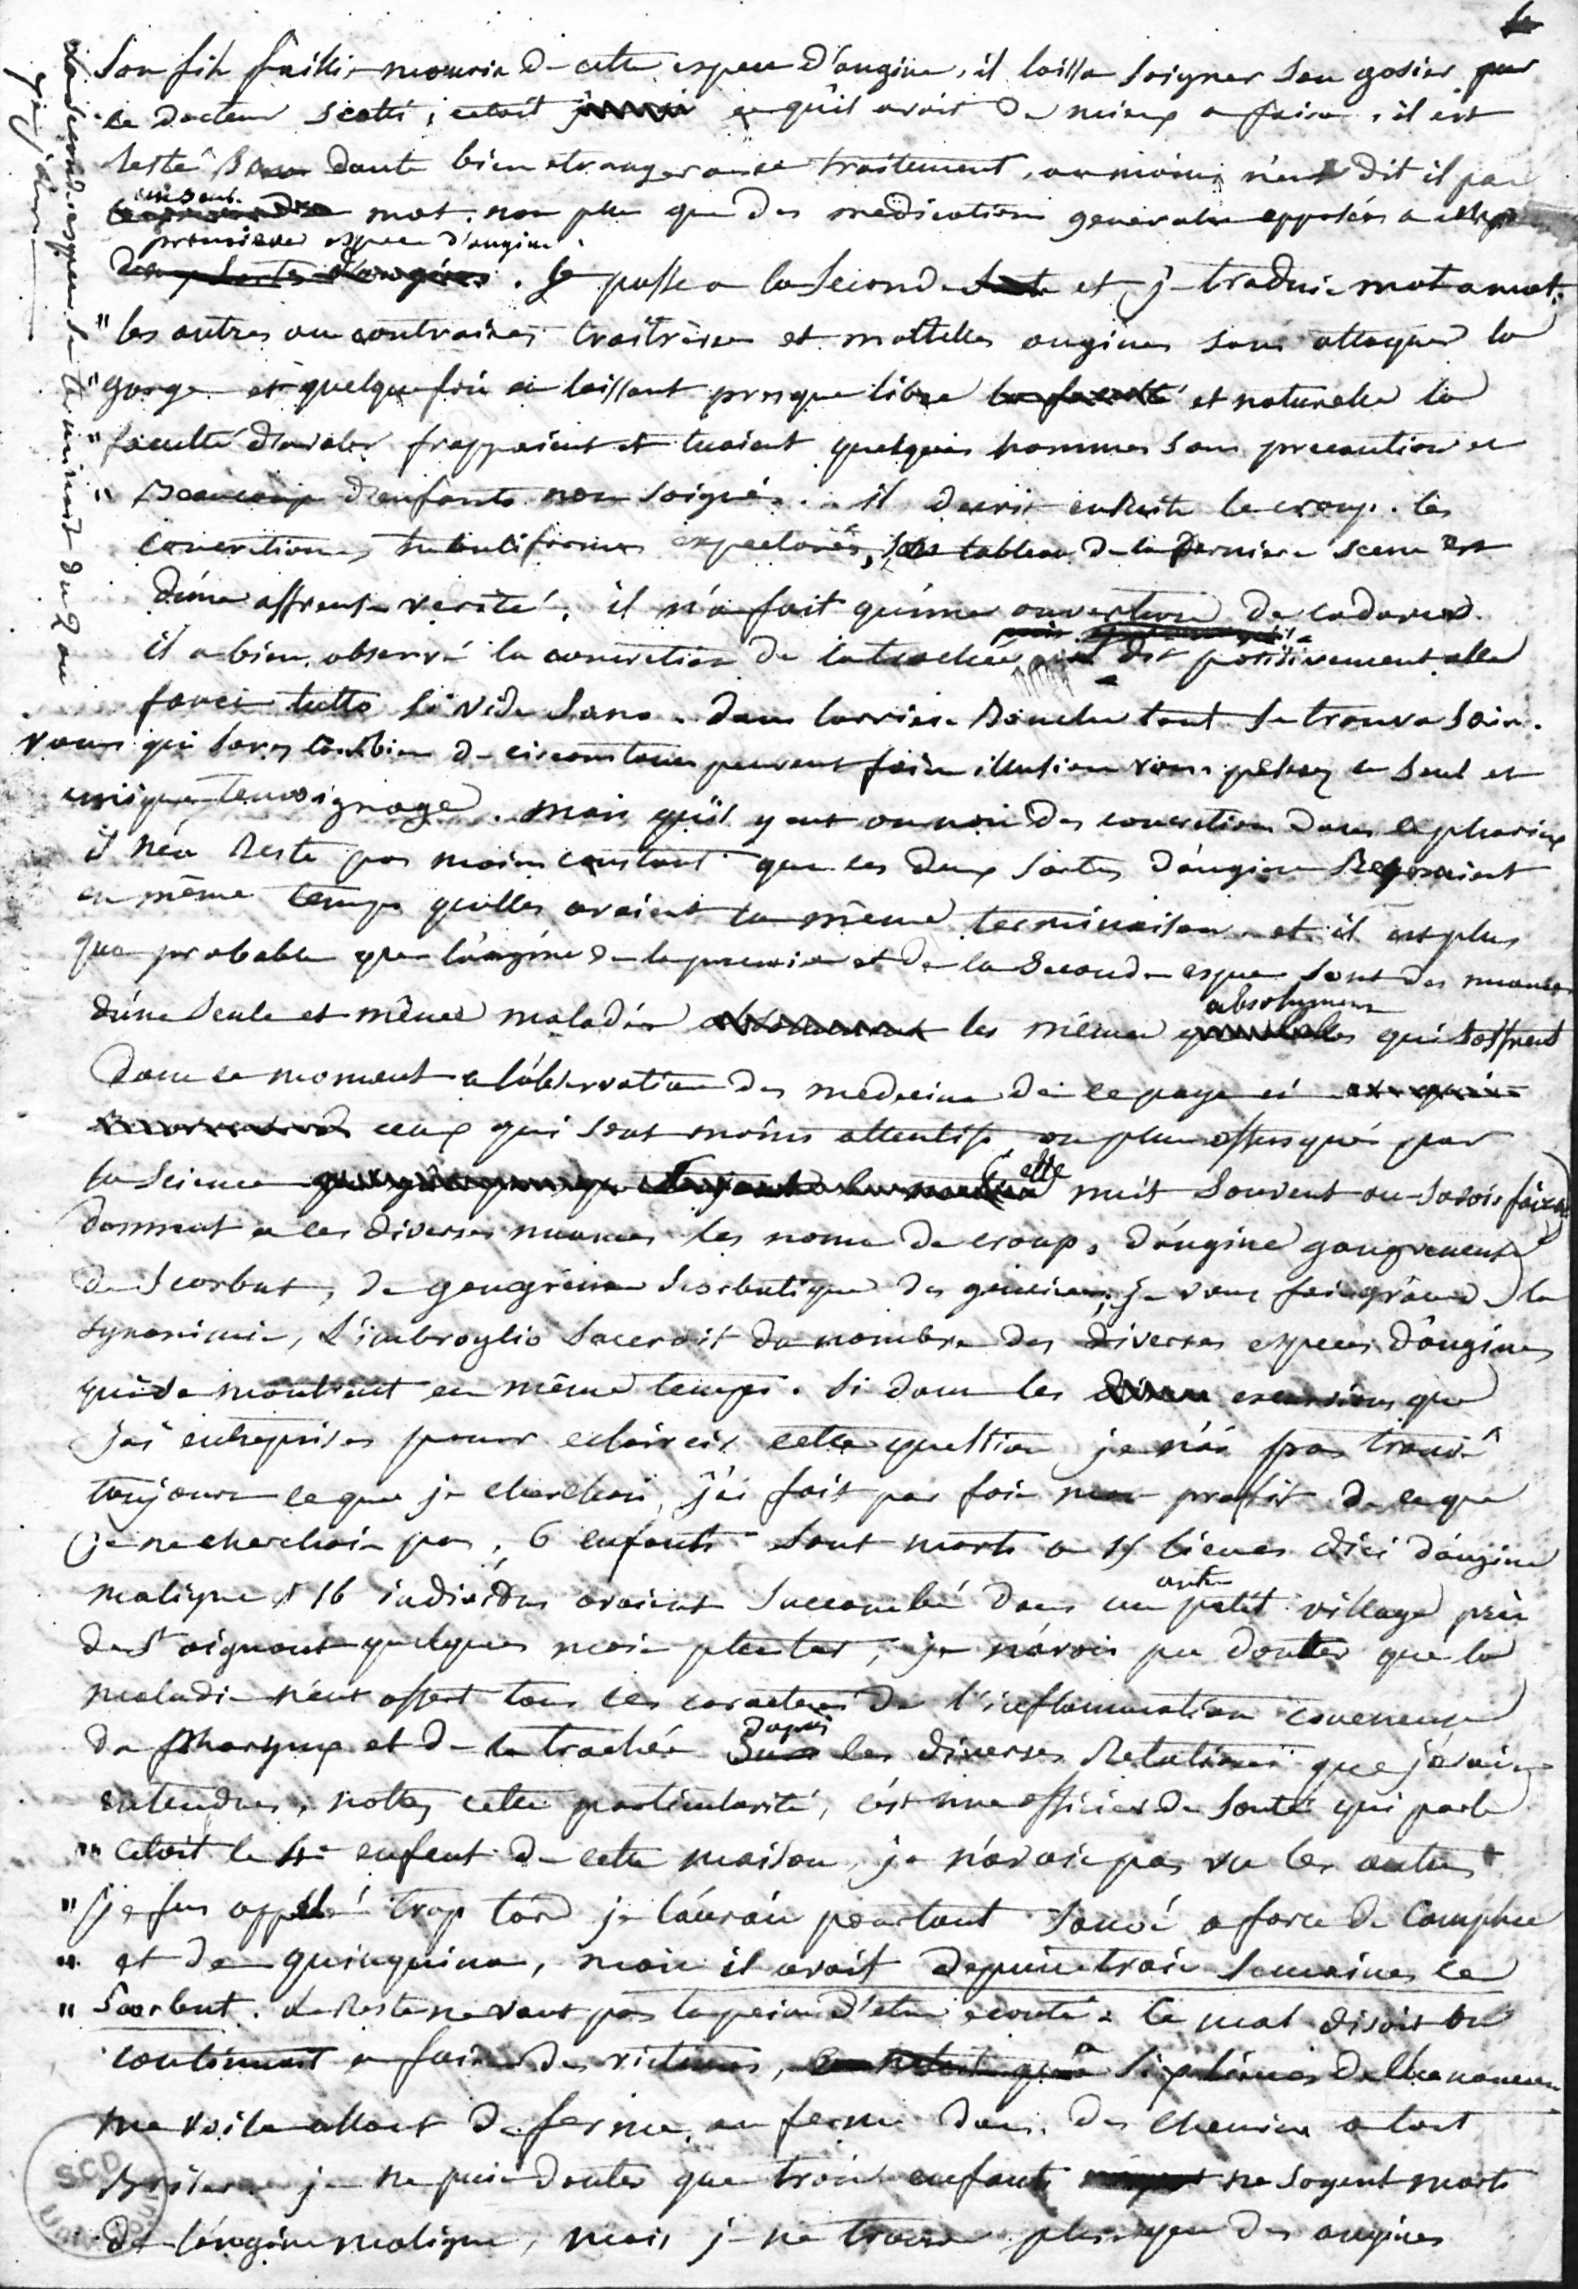 Son fils faillit mourir de cette espece d'angine, il laissa soigner son gosier par
le docteur Scotti; cetoit ce qu'il avoit de mieux a faire, il est
resté sans doute bien etranger a ce traitement, au moins n'en dit il pas
un seul mot, non plus que des medications generales opposées a cette
premiere espece d'angine. Je passe a la seconde et je traduis mot a mot.
" les autres au contraire, traitresses et mortelles angines sans attaquer la
" gorge et quelque fois en laissant presque libre et naturelle la
" faculté d'avaler frappaient et tuaient quelques hommes sans precaution et
" Beaucoup d'enfants non soignés. il decrit ensuite le croup. les
concretions tubuliformes expectorées, le tableau de la derniere scene est
d'une affreuse verité. il n'a fait qu'une ouverture de cadavre.
il a bien observé la concretion de la trachée dit positivement alle
fauci tutto si vide sano. dans larriere Bouche tout se trouva sain.
vous qui savez combien de circonstances peuvent faire illusion vous peserez ce seul et
unique temoignage. mais qu'il y eut ou non des concretions dans le pharinx
il n'en reste pas moins constant que ces deux sortes d'angine Regnaient
en même temps qu'elles avaient la même terminaison et il est plus
que probable que l'angine de la premiere et de la seconde espece sont des nuances
d'une seule et même maladie les mêmes absolument qui s'offrent
dans ce moment a l'observation des medecins de ce pays ci
ceux qui sont moins attentifs ou plus offusqués par
la science (elle nuit souvent au savoir faire)
donnent a ces diverses nuances les noms de croup, d'angine gangreneuse
de scorbut, de gangrene scorbutique des gencives; je vous fais grace de la
synonimie, L'imbroglio s'accroit du nombre des diverses especes d'angines
qui se montrent en même temps. Si dans les excursions que
j'ai entreprises pour eclaircir cette question je n'ai pas trouvé
toujours ce que je cherchois, j'ai fait par fois mon profit de ce que
je ne cherchois pas, 6 enfants sont morts a lieues d'ici d'angine
maligne 16 individus avaient succombé dans un autre petit village près
de St aignant quelques mois plutot; je n'avois pu douter que la
maladie n'eut offert tous les caracteres de l'inflammation couenneuse
du pharynx et de la trachée d'après les diverses Relations que j'avais
entendues, nottez cette particularité, c'est un officier de Santé qui parle
" cetoit le 4e enfant de cette maison, je n'avois pas vu les autres
" je fus appelé trop tard je l'aurais pourtant sauvé a force de Camphre
" et de quinquina, mais il avoit depuis trois semaines le
" Scorbut. Le Reste ne vaut pas la peine d'etre ecouté. le mal disoit on
continuait a faire des victimes, a six lieues de Chenonceau
me voila allant de ferme en ferme dans des chemins a tout
Briser je ne puis douter que trois enfants ne soyent morts
de l'angine maligne, mais je ne trouve plus que des angines
La seconde espece se terminait du 2 au
SCD